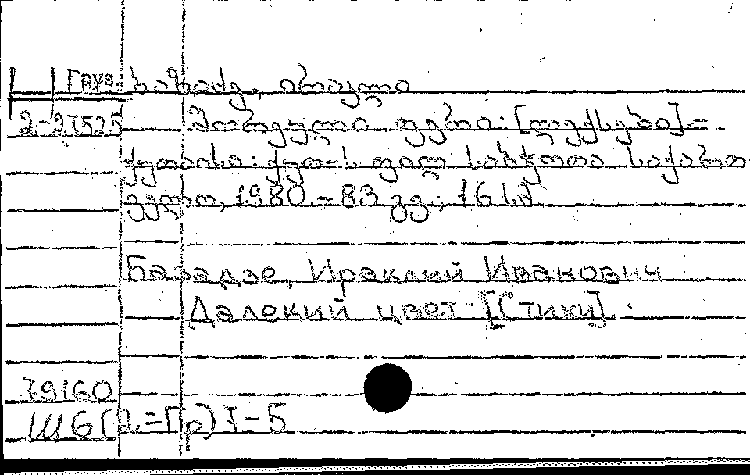 Груз. ბაზაძე, ირაკლი
2-27525 შორეული ფერი: [ლექსები].-
ქუთაისი: ქუთ-ს ფილ. საბჭოთა საქართ
ველო, 1980.- 83 გვ.; 16 სმ
Базадзе, Ираклий Иванович
Далекий цвет: [Стихи].
79160
Ш6(2=Гр)7-5